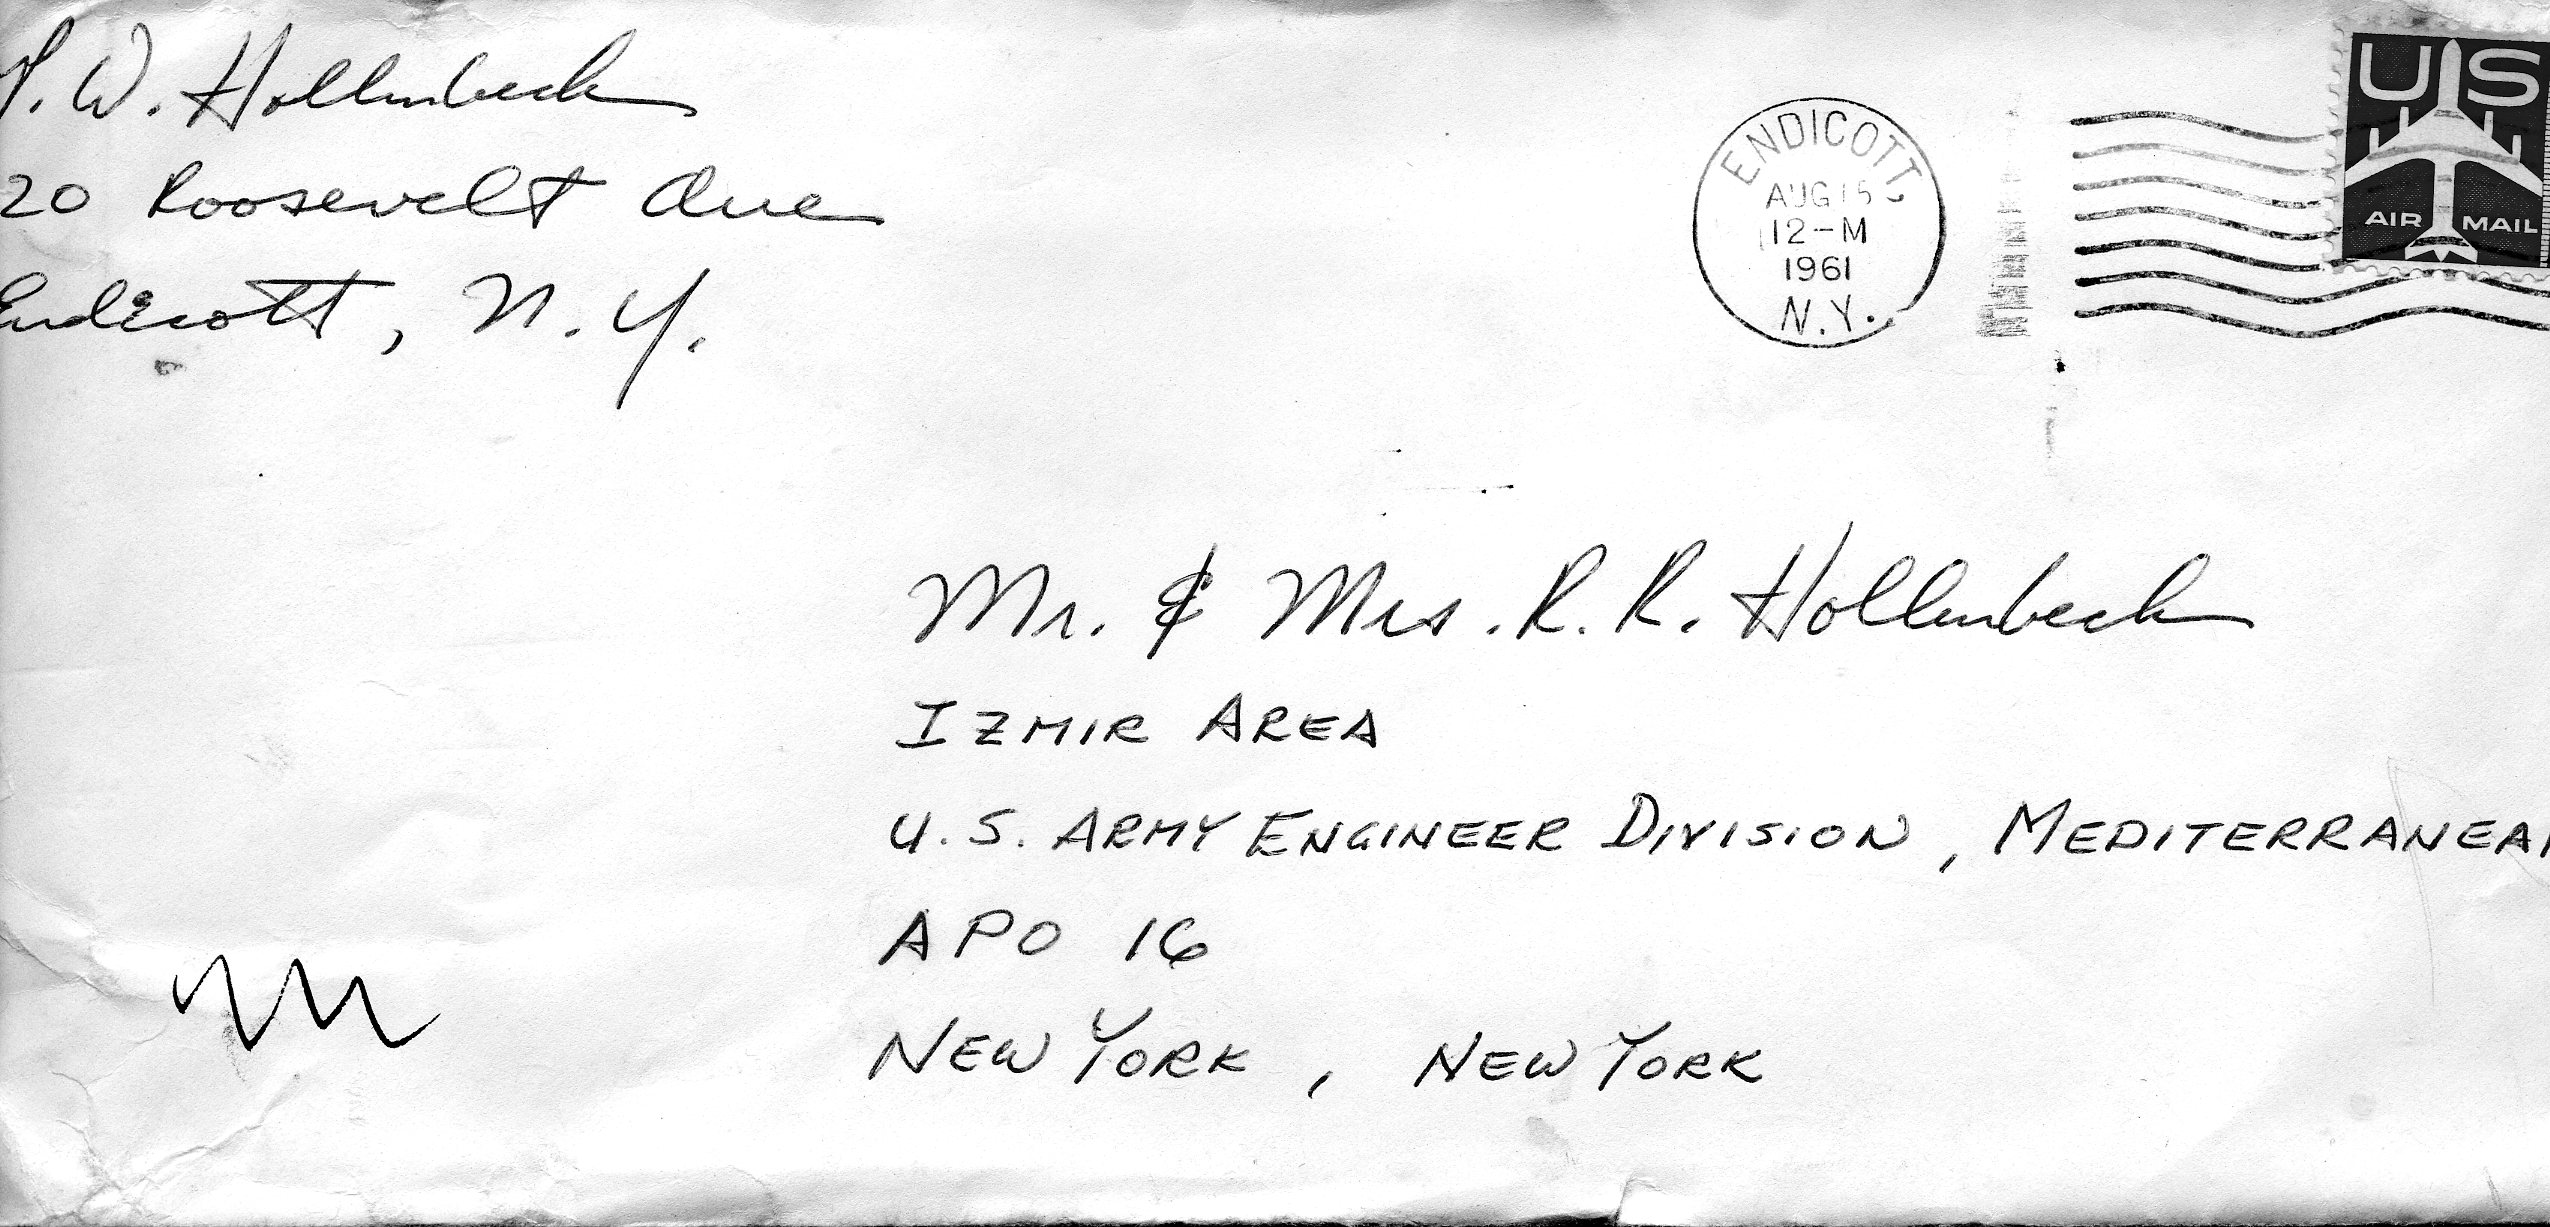 W. Hollenbeck
20 Roosevelt Ave
Endicott, N.Y.
ENDICOTT,
AUG 15
12-M
1961
N.Y.
US
AIR MAIL
Mr. & Mrs. R. R. Hollenbeck
IZMIR AREA
U.S. ARMY ENGINEER DIVISION, MEDITERRANEAN
APO 16
NEW YORK, NEW YORK